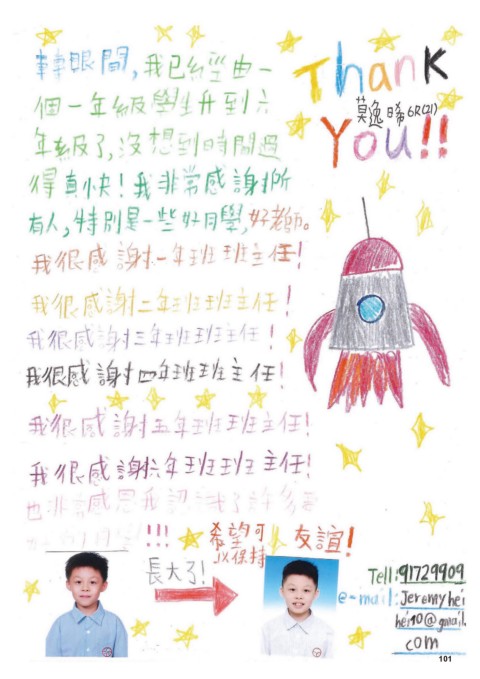 轉眼間,我已經由一
個一年級學生升到六
年級了,沒想到時間過
得真快!我非常感謝所
有人,特別是一些好同學,好老師。
我很感謝一年班班主任!
我很感謝二年班班主任!
我很感謝三年班班主任!
我很感謝四年班班主任!
我很感謝五年班班主任!
我很感謝六年班班主任!
也非常感恩我認識了許多
!!!
希望可
以保持
友誼!
Thank
莫逸晞 6R(21)
You!!
長大了!
Tell:91729909
e-mail:Jeremyhei
hei10@gmail.
com
101